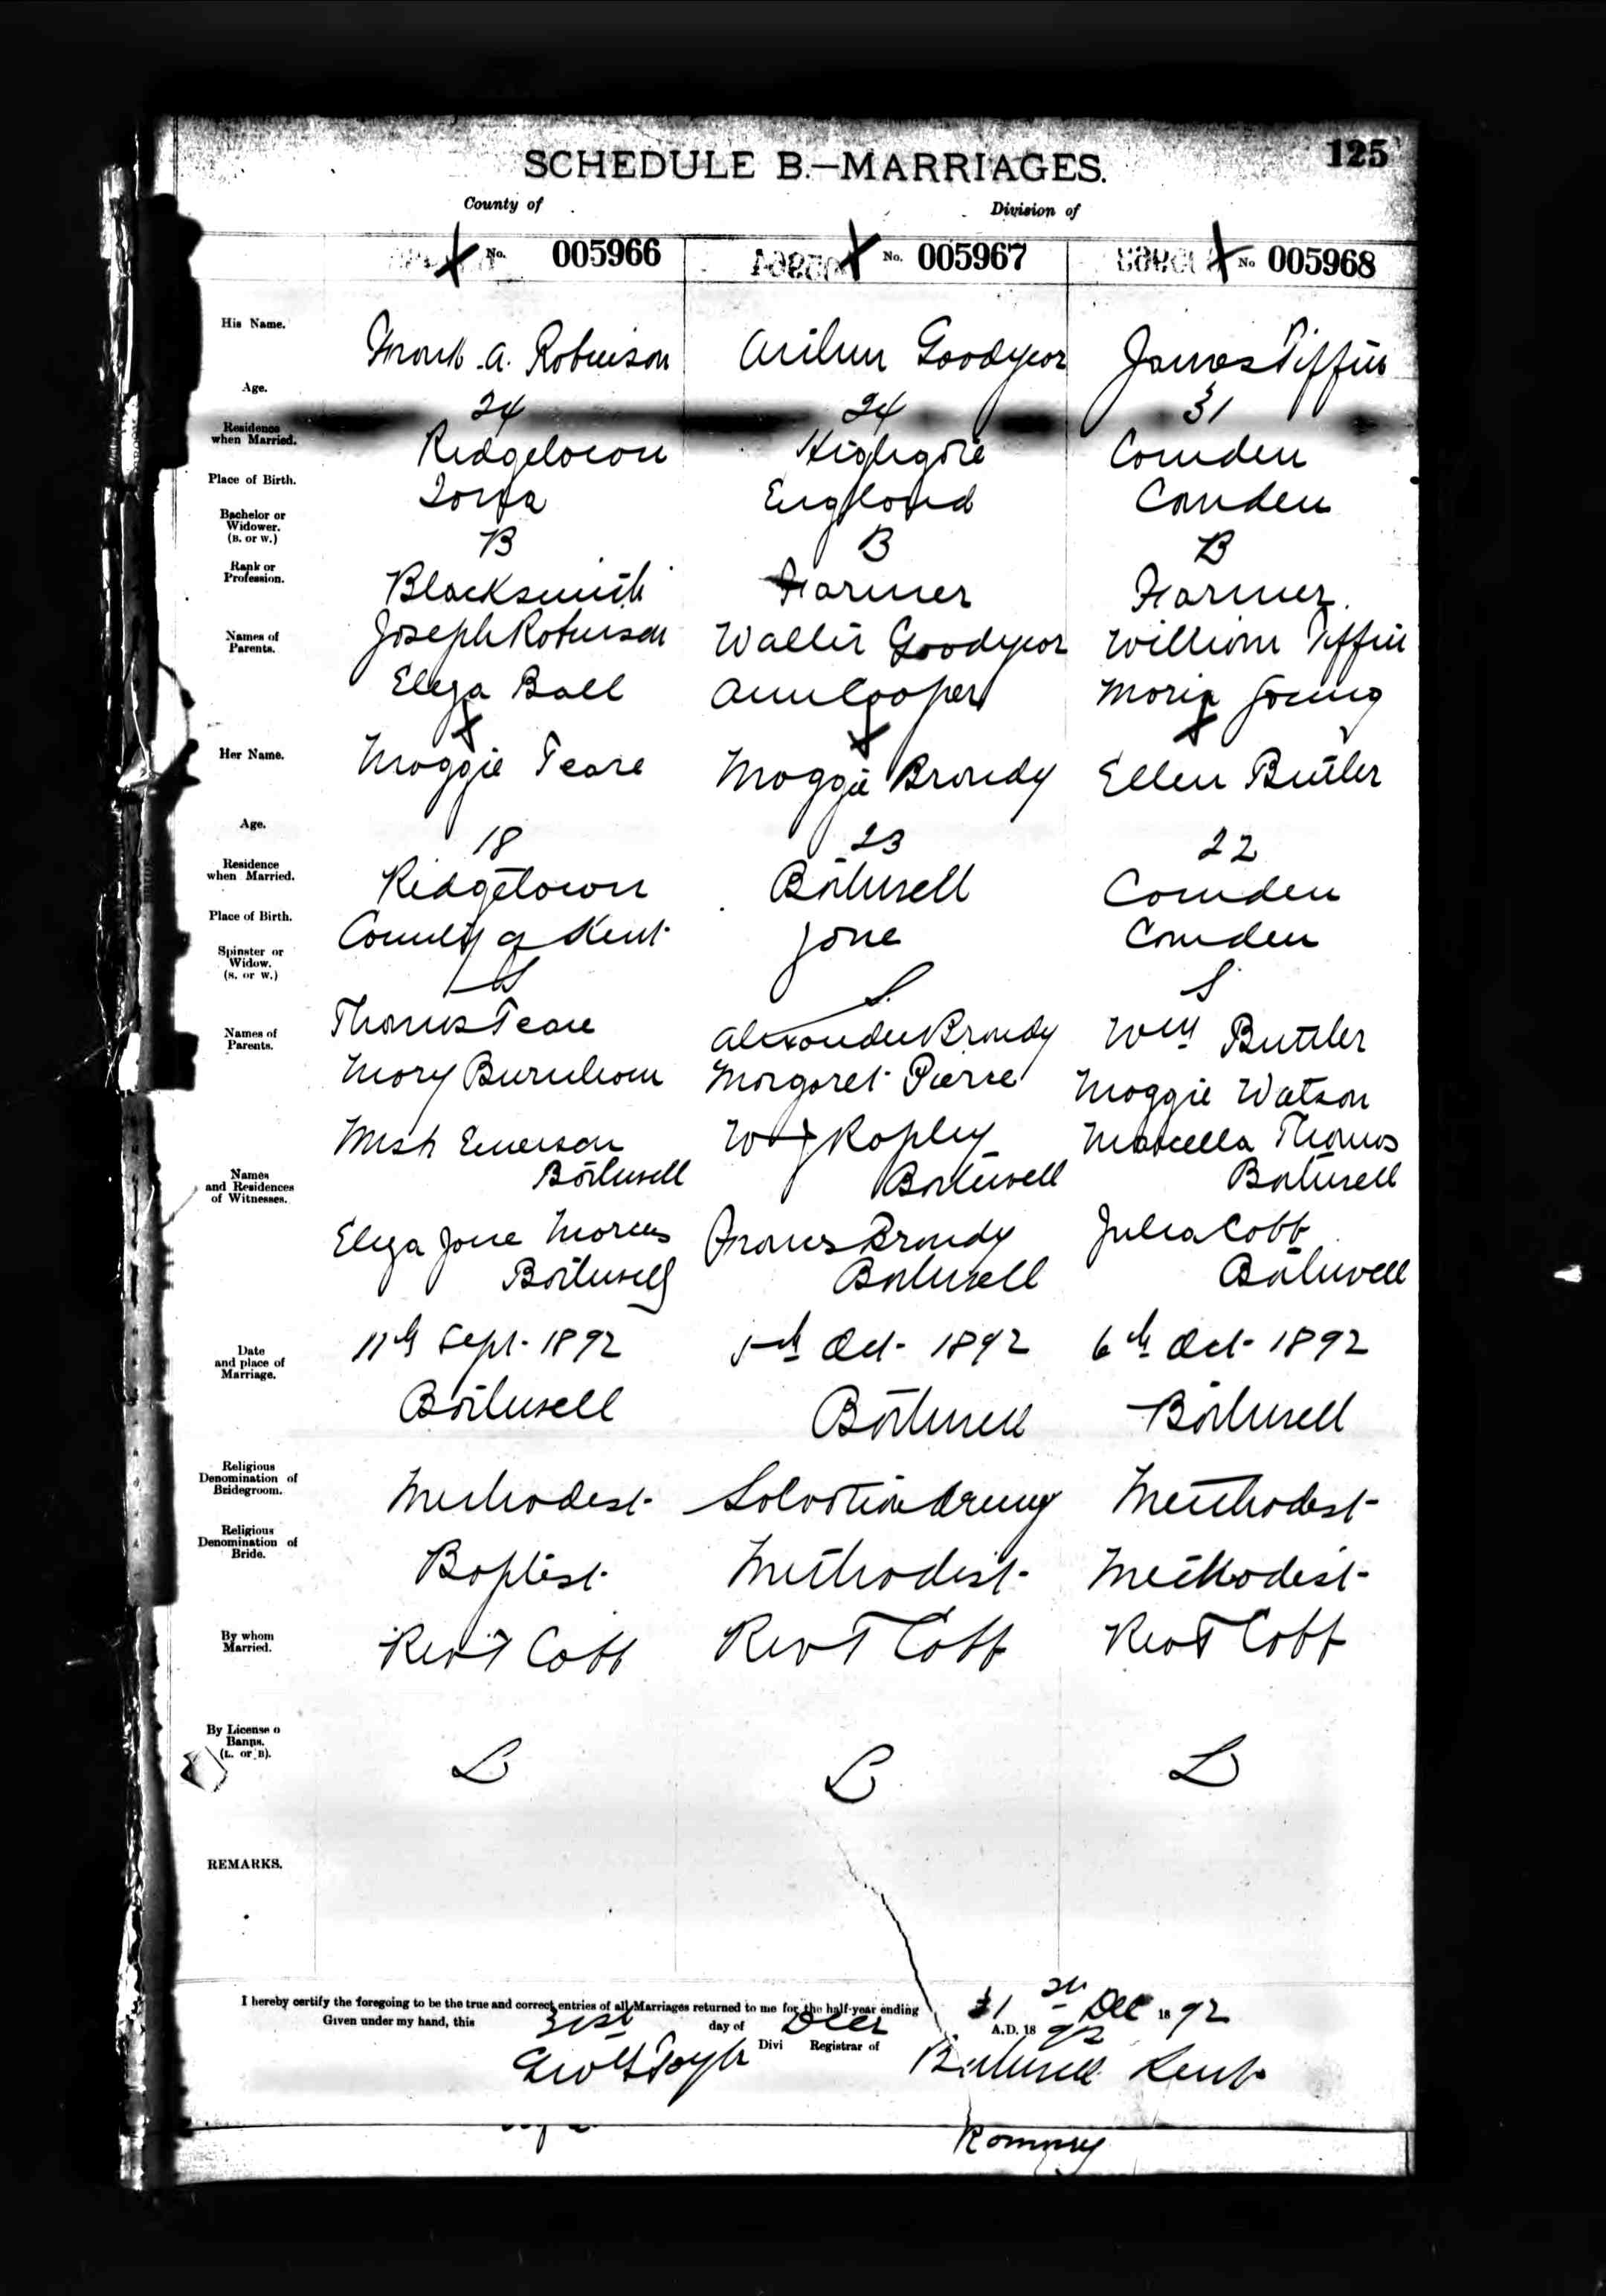 125
SCHEDULE B.—MARRIAGES.
County of
Division of
No. 005966
No. 005967
No 005968
His Name.
A. Robinson
Arthur Goodyear
James Tiffin
Age.
24
24
31
Residence when Married.
Ridgetown
Highgate
Camden
Place of Birth.
Iowa
England
Camden
Bachelor or Widower. (B. or W.)
B
B
B
Rank or Profession.
Blacksmith
Farmer
Farmer.
Names of Parents.
Joseph Robinson
Walter Goodyear
William Tiffin
Eliza Ball
Ann Cooper
Maria Young
Her Name.
Maggie Teare
Maggie Brandy
Ellen Butler
Age.
18
23
22
Residence when Married.
Ridgetown
Bothwell
Camden
Place of Birth.
County of Kent
Zone
Camden
Spinster or Widow. (S. or W.)
S
S.
S
Names of Parents.
Thomas Teare
Alexander Brandy
Wm Buttler
Mary Burnham
Margaret Pierce
Maggie Watson
Names and Residences of Witnesses.
Emerson
W J Kapley
Marcella Thomas
Bothwell
Bothwell
Bothwell
Eliza Jane
Brandy
Julia Cobb
Bothwell
Bothwell
Bothwell
Date and place of Marriage.
11th Sept. 1892
5th Oct. 1892
6th Oct. 1892
Bothwell
Bothwell
Bothwell
Religious Denomination of Bridegroom.
Methodist
Salvation Army
Methodist
Religious Denomination of Bride.
Baptist
Methodist
Methodist
By whom Married.
Rev T Cobb
Rev T Cobb
Rev T Cobb
By License o Banns. (L. or B).
L
L
L
REMARKS.
I hereby certify the foregoing to be the true and correct entries of all Marriages returned to me for the half-year ending 31 st Dec 1892
Given under my hand, this 31st day of Decr A.D. 1892
Divi Registrar of Bothwell Kent
Romney